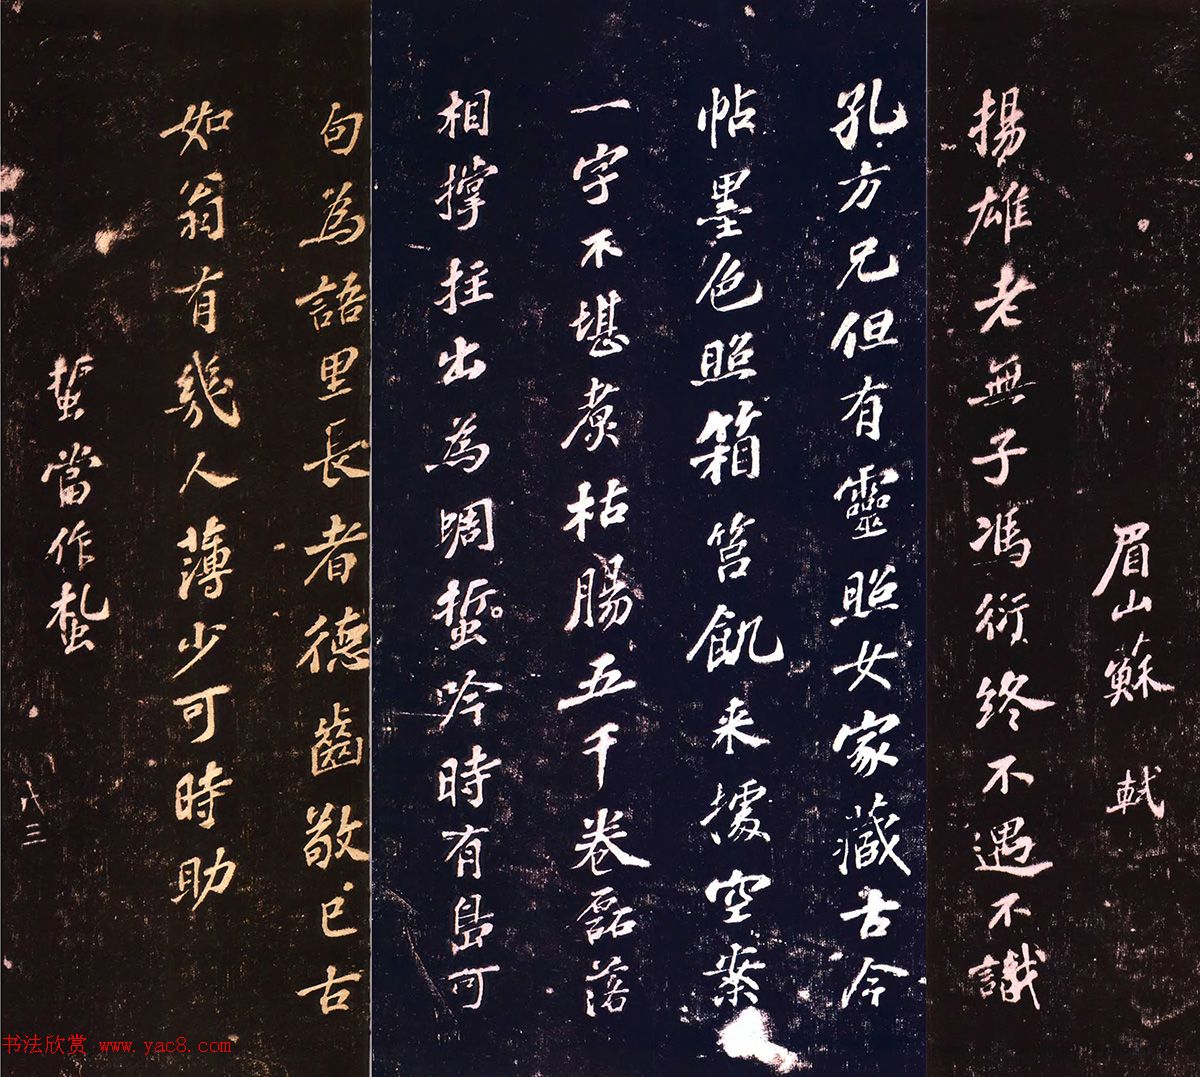 眉山蘇軾
揚雄老無子馮衍終不遇不識
孔方兄但有靈照女家藏古今
帖墨色照箱筥飢来據空案
一字不堪煑枯腸五千卷磊落
相撐拄出為蜩蜇吟時有島可
句為語里長者德齒敬已古
如翁有幾人薄少可時助
蜇當作蚻
八三
书法欣赏 www.yac8.com